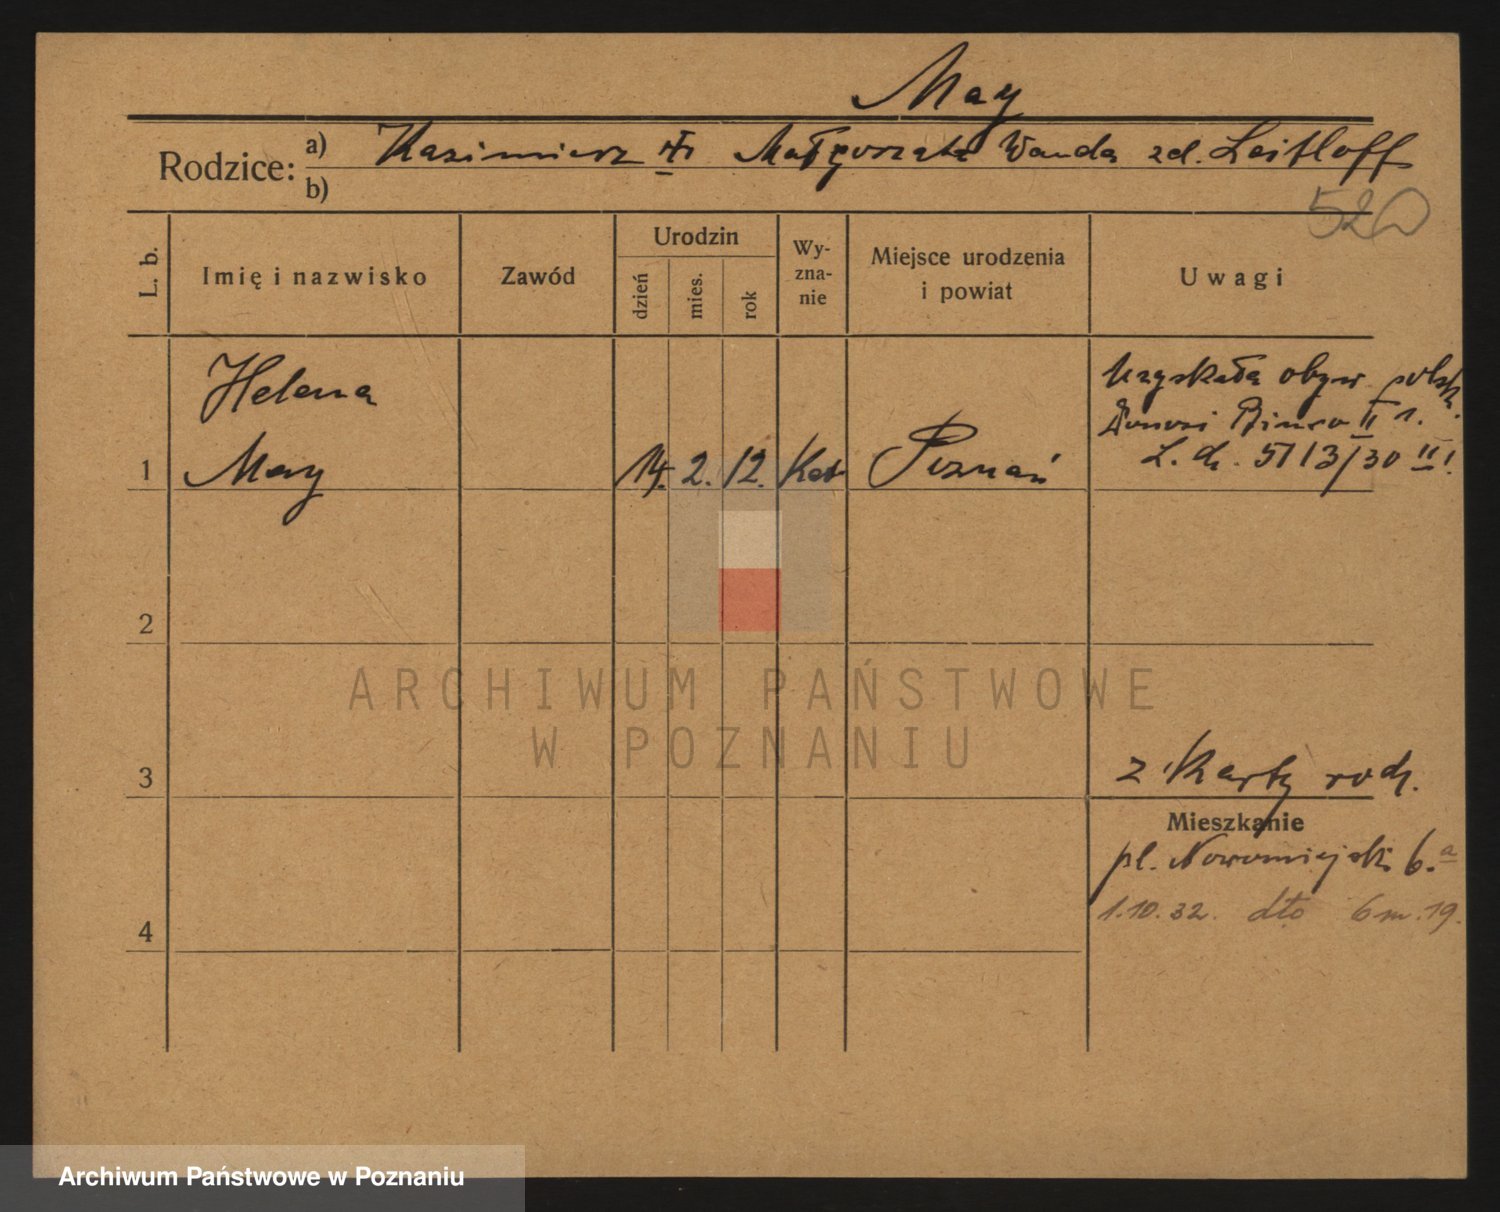 May
Rodzice:
a) Kazimierz Małgorzata Wanda zd. Leitloff
b)
520
L. b.
Imię i nazwisko
Zawód
Urodzin
dzień
mies.
rok
Wy-
zna-
nie
Miejsce urodzenia
i powiat
Uwagi
Helena
1 May 14. 2. 12. Kat Poznań
Uzyskała obyw. polsk.
Biura II
L. dz. 5113/30 II
2
ARCHIWUM PAŃSTWOWE
W POZNANIU
3
z Karty rodz.
Mieszkanie
pl. Nowomiejski 6.a
1.10.32. dto 6 m. 19.
4
Archiwum Państwowe w Poznaniu